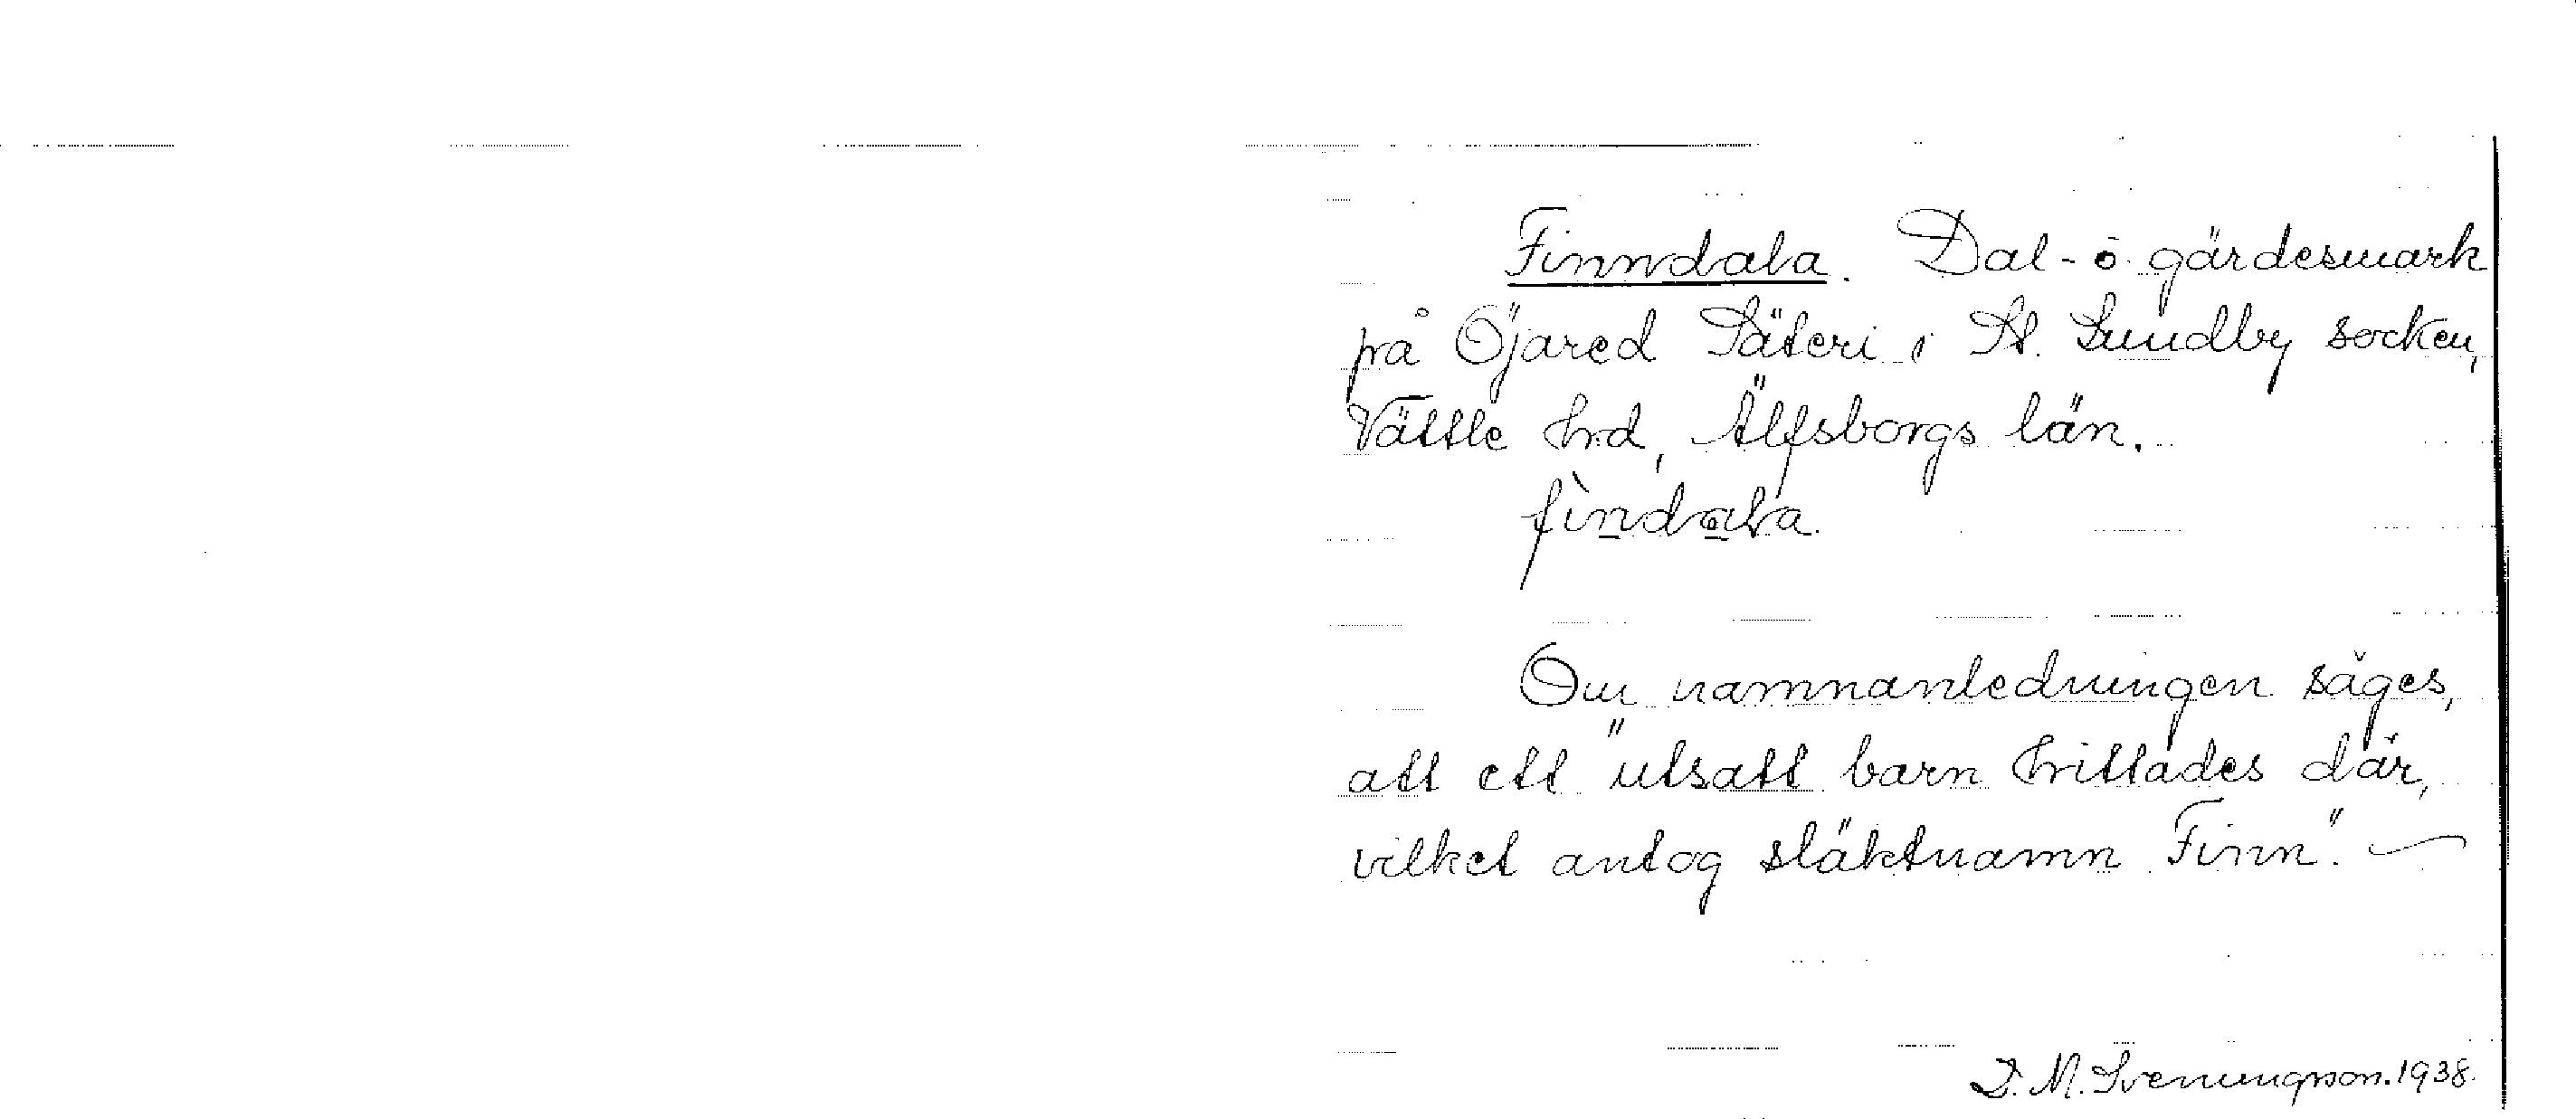 Finndala. Dal- o. gärdesmark
på Öjared Säteri i St. Lundby socken,
Vättle hrd, Älfsborgs län.
fìndala.
Om namnanledningen säges,
att ett "utsatt barn hittades där,
vilket antog släktnamn Finn". —
D. M. Svenungsson. 1938.